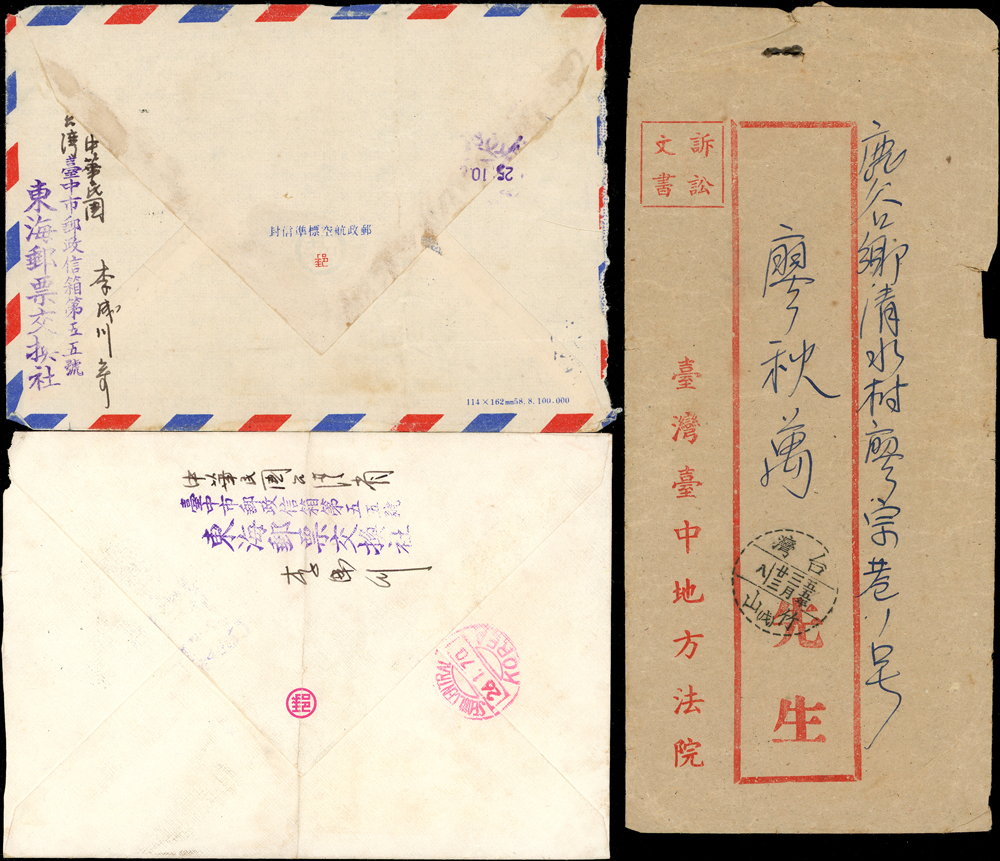 中華民國
台灣臺中市郵政信箱第五五號
東海郵票交換社
李成川寄
25.10.
郵政航空標準信封
郵
114×162mm58.8.100.000
中華民國台灣省
臺中市郵政信箱第五五號
東海郵票交換社
SEOUL CENTRAL
24.1.70
KOREA
郵
鹿谷鄉清水村廖宗巷1号
訴訟
文書
廖秋萬
先生
台灣
五五年
三月
廿三
八
竹山
臺灣臺中地方法院